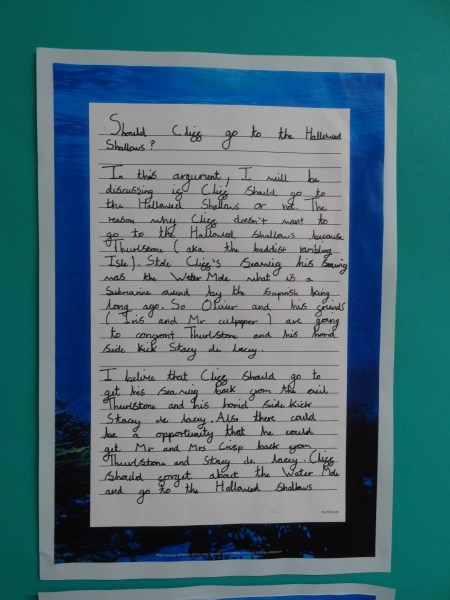 Should Cliff go to the Hallowed
Shallows?
In this argument, I will be
discussing if Cliff Should go to
the Hallowed Shallows or not. The
reason why Cliff doesn't want to
go to the Hallowed Shallows because
Thurlstone (aka the baddist rambling
Isle). Stole Cliff's Seawig his
was the Water Mole what is a
Submarine owend by the Spanish king
long ago. So Oliver and his friends
(Iris and Mr culpeper) are going
to confront Thurlstone and his horid
side kick Stacy de Lacey.
I belive that Cliff Should go to
get his Sea wig back from the evil
Thurlstone and his horid Side kick
Stacey de Lacey. Also there could
be a opportunity that he could
get Mr and Mrs Crisp back from
Thurlstone and Stacy de lacey. Cliff
Should forget about the Water Mole
and go to the Hallowed Shallows